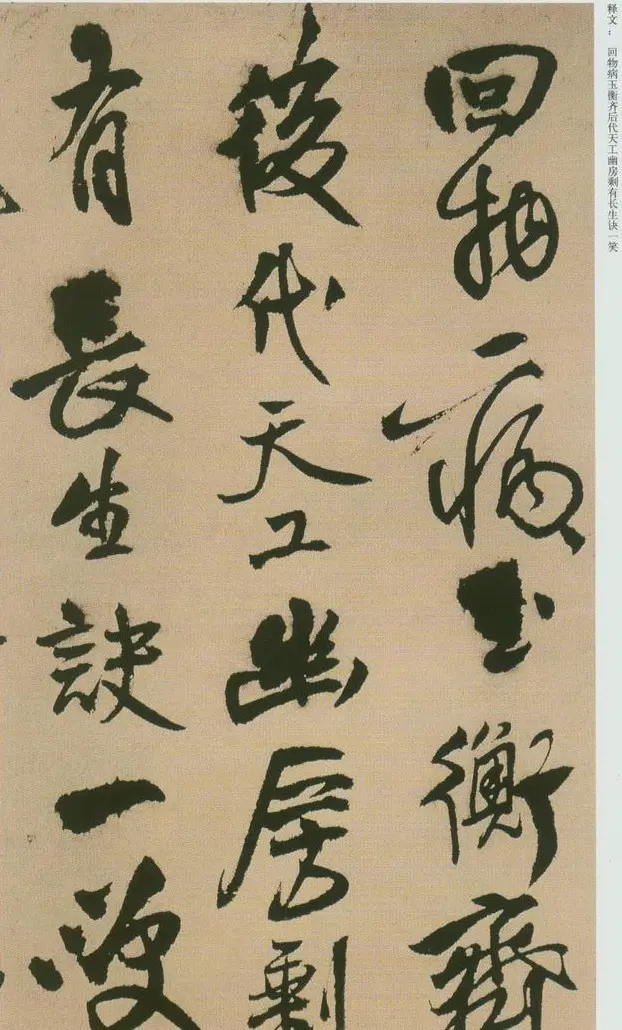 释文： 回物病玉衡齐后代天工幽房剩有长生诀一笑
回物病玉衡齊
後代天工幽房剩
有長生訣一笑